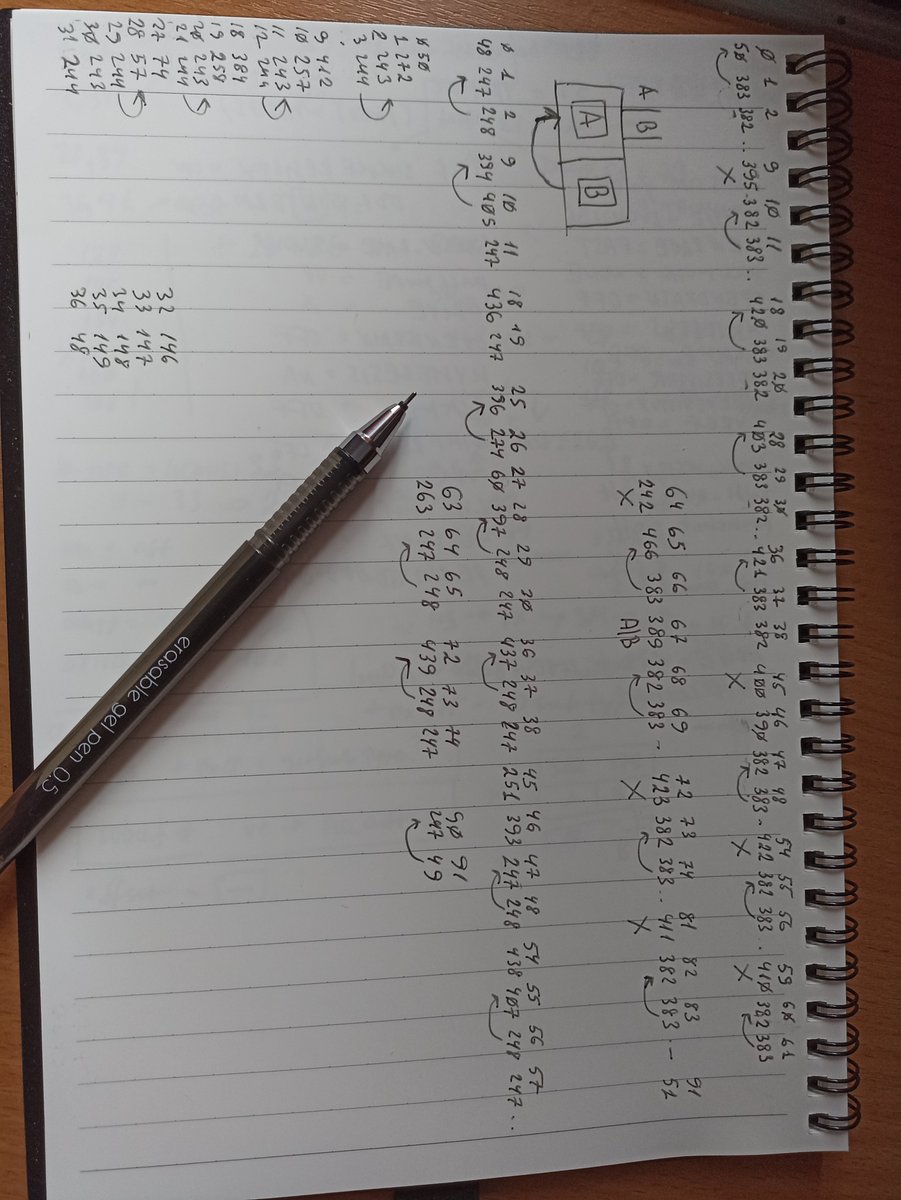 Ø 1 2 9 1Ø 11 18 19 2Ø 28 29 3Ø 36 37 38 45 46 47 48 54 55 56 59 6Ø 61
5Ø 383 382 .. 395 382 383 .. 42Ø 383 382 4Ø3 383 382 .. 421 383 382 4ØØ 39Ø 382 383 .. 422 382 383 .. 41Ø 382 383
X X X X
64 65 66 67 68 69 72 73 74 81 82 83 91
242 466 383 389 382 383 .. 423 382 383 .. 441 382 383 .. 51
X A|B X X
A|B
A B
Ø 1 2 9 1Ø 11 18 19 25 26 27 28 29 2Ø 36 37 38 45 46 47 48 54 55 56 57
48 247 248 394 4Ø5 247 436 247 396 274 6Ø 397 248 247 437 248 247 251 393 247 248 438 4Ø7 248 247 ...
63 64 65 72 73 74 9Ø 91
263 247 248 439 248 247 247 49
Ø 5Ø
1 272
2 243
3 244
:
9 412
1Ø 257
11 243
12 244
18 384
19 258
2Ø 243
21 244
27 74
28 57
29 244
3Ø 243
31 244
32 146
33 147
34 148
35 149
36 48
erasable gel pen 0.5